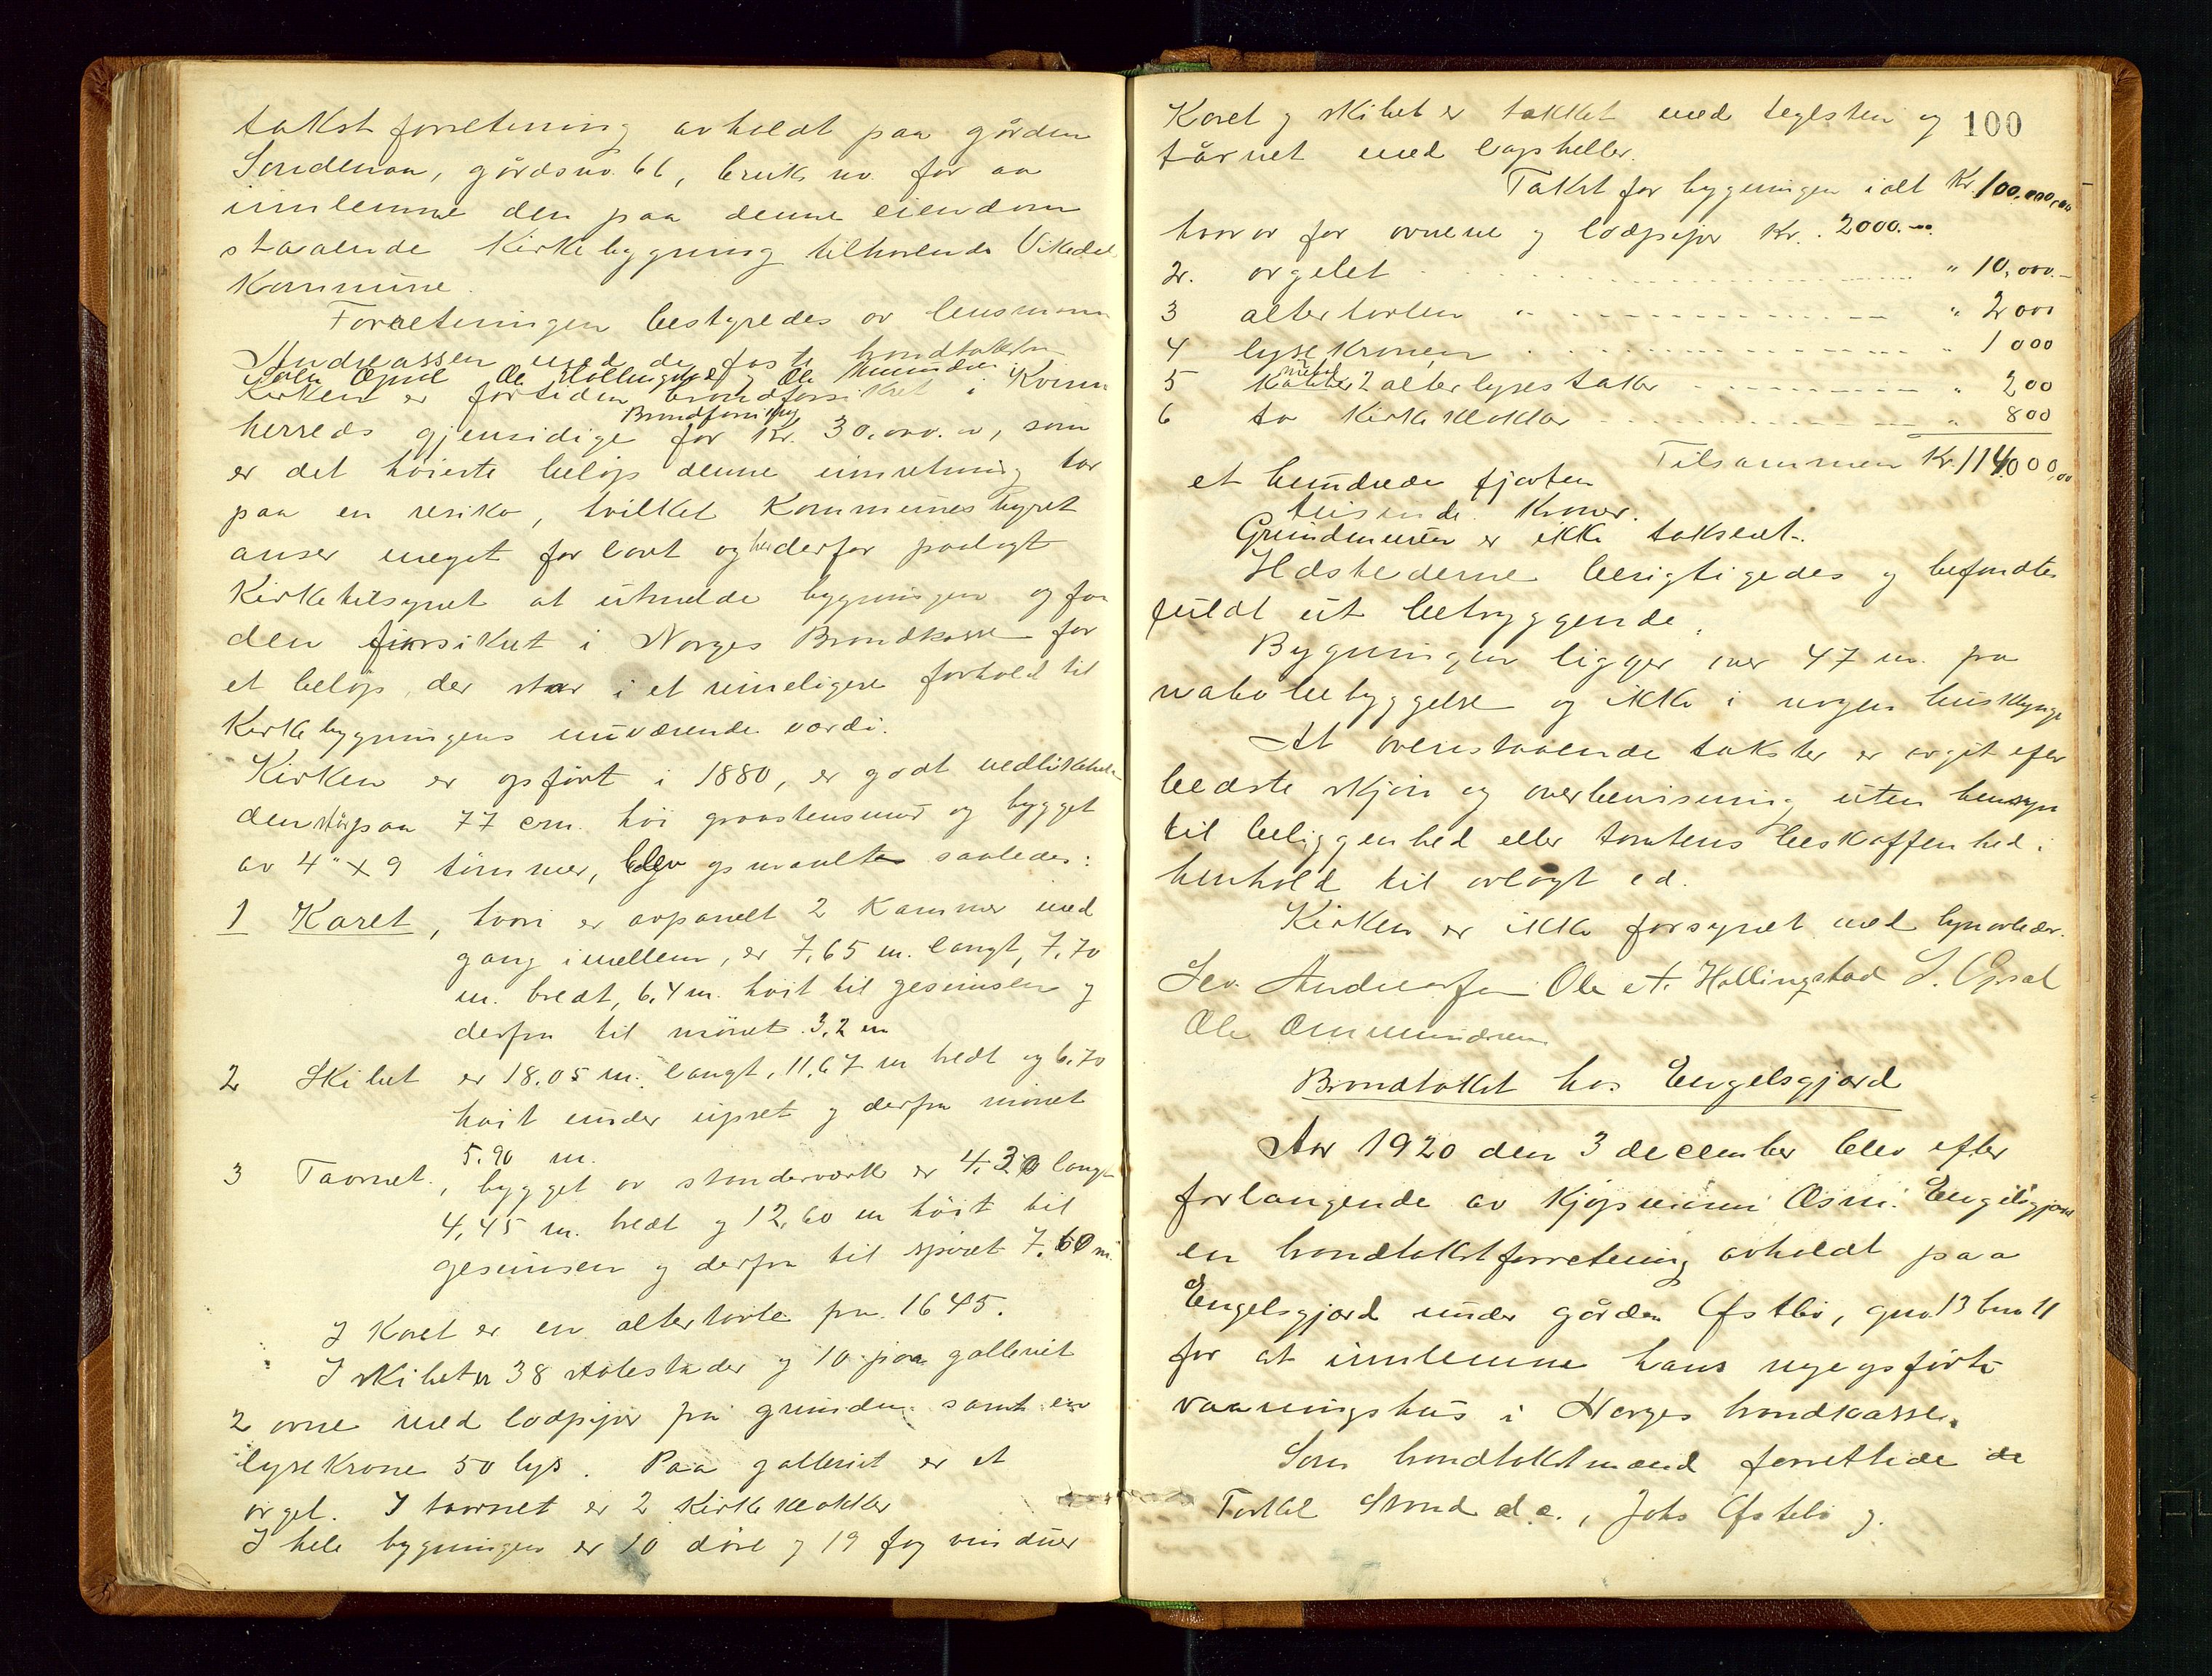 takstforretning avholdt paa gården
Søndenaa, gårdsno. 66, bruks no. for aa
innlemme den paa denne eiendom
staaende Kirkebygning tilhørende Vikedal
Kommune.
Forretningen bestyredes av lensmann
Andreassen med de faste brandtakstm
Opsal Ole Hollingstad og Ole Ommundsen
Kirken er fortiden brandforsikret i Kvinn
herreds gjensidige Brandforsikring for Kr. 30.000.00, som
er det høieste beløp denne innretning tar
paa en resiko, hvilket Kommunestyret
anser meget for lavt og har derfor paalagt
Kirketilsynet at utmelde bygningen og faa
den forsikret i Norges Brandkasse for
et beløp, der staar i et rimeligere forhold til
Kirkebygningens nuværende værdi.
Kirken er opført i 1880, er godt vedlikehol-
den står paa 77 cm. høi graastensmur og bygget
av 4" x 9 tømmer, blev opmaalt saaledes:
1 Koret, hvori er avpanelt 2 kammer med
gang imellem, er 7,65 m. langt, 7,70
m. bredt, 6,4 m. høit til gesimsen og
derfra til mønet 3,2 m
2 Skibet er 18.05 m. langt, 11,67 m bredt og 6,70
høit under upset og derfra mønet
5.90 m.
3 Taarnet, bygget av standerværk er 4.30 langt
4,45 m. bredt og 12,60 m høit til
gesimsen og derfra til spiret 7.60 m.
I Koret er en altertavle fra 1645.
I skibet er 38 stolestader og 10 paa galleriet
2 ovne med lodpiper fra grunden samt en
lysekrone 50 lys. Paa galleriet er et
orgel. I taarnet er 2 Kirkeklokker
I hele bygningen er 10 døre og 19 fag vinduer
100
Koret og skibet er takket med teglsten og
tårnet med lapheller.
Takst for bygningen ialt Kr. 100,000,00
hvorav for ovnene og lodpiper Kr. 2000.00.
2. orgelet " 10,000.-
3 altertavlen " " 2000
4 lysekronen " 1000
5 2 alterlysestaker " 200
6 to Kirkeklokker " 800
Tilsammen Kr. 114000,00
et hundrede fjorten
tusinde Kroner.
Grundmuren er ikke taksert.
Ildstederne besigtigedes og befandtes
fuldt ut betryggende.
Bygningen ligger over 47 m. fra
nabobebyggelse og ikke i nogen husklynge
At ovenstaaende takster er avgit efter
bedste skjøn og overbevisning uten hensyn
til beliggenhed eller tomtens beskaffenhed i
henhold til avlagt ed.
Kirken er ikke forsynet med lynavleder.
Sev. Andreassen Ole A. Hollingstad S. Opsal
Ole Ommundsen
Brandtakst hos Engelsgjærd
Aar 1920 den 3 december blev efter
forlangende av Kjøpmann Asm. Engelsgjærd
en brandtakstforretning avholdt paa
Engelsgjærd under gården Østbø, gno. 13 bno 11
for at innlemme hans nyopførte
vaaningshus i Norges brandkasse.
Som brandtakstmænd forrettede de
Torkel Strand d.e., Johs Østebø og